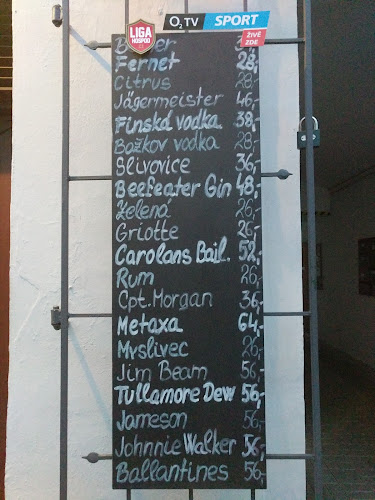 LIGA
HOSPOD
O2 TV SPORT
ŽIVĚ
ZDE
Fernet 28,-
Citrus 28,-
Jägermeister 46,-
Finská vodka 38,-
Božkov vodka 28,-
Slivovice 36,-
Beefeater Gin 48,-
Zelená 26,-
Griotte 26,-
Carolans Bail. 52,-
Rum 26,-
Cpt. Morgan 36,-
Metaxa 64,-
Myslivec 26,-
Jim Beam 56,-
Tullamore Dew 56,-
Jameson 56,-
Johnnie Walker 56,-
Ballantines 56,-